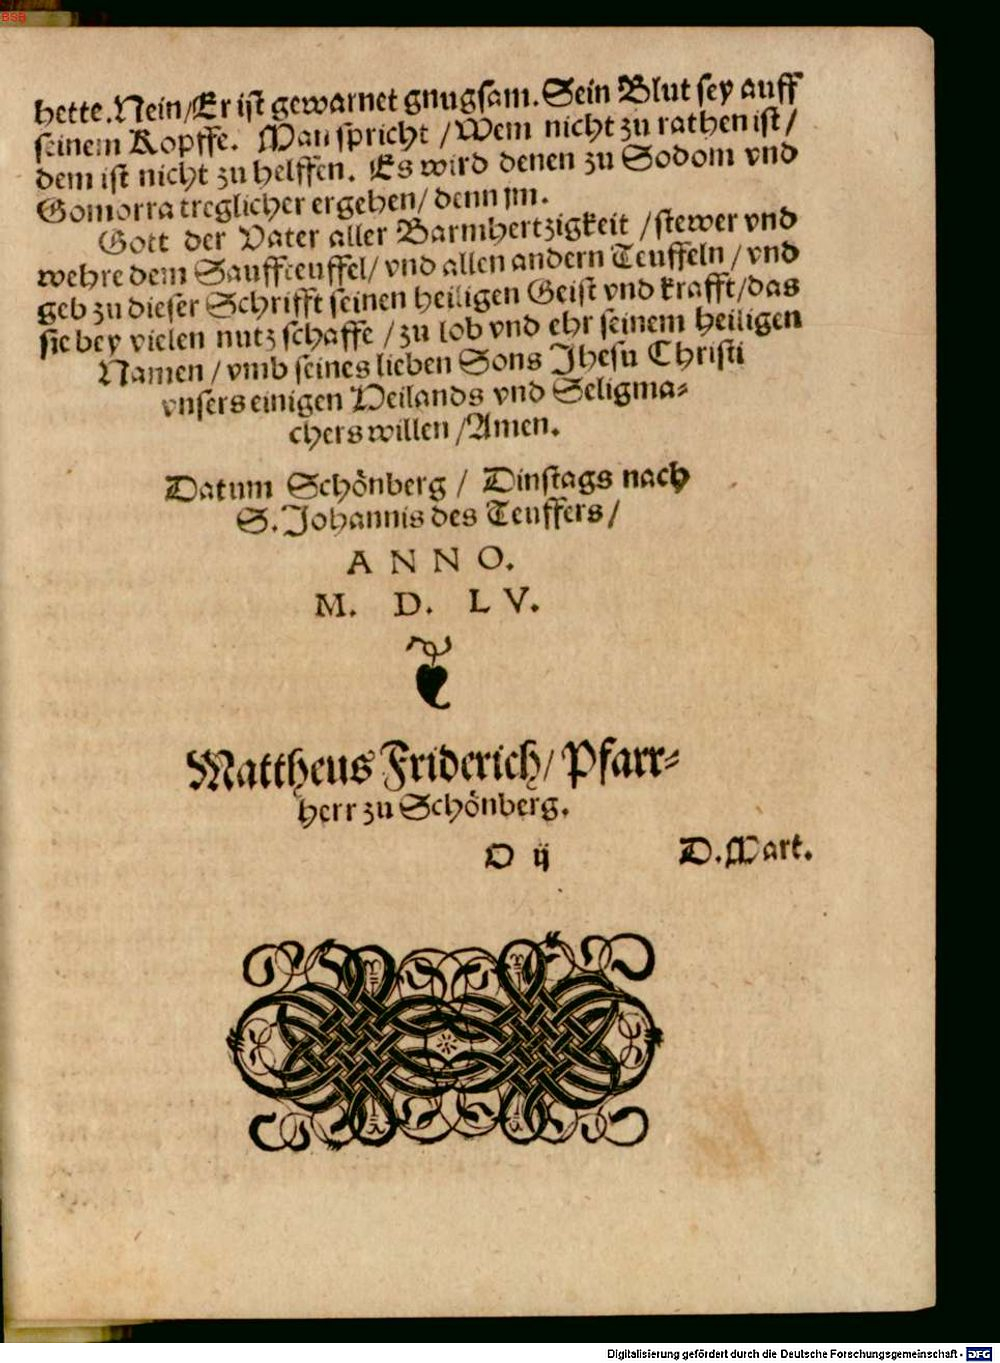 BSB
hette. Nein/Er ist gewarnet gnugsam. Sein Blut sey auff
seinem Kopffe. Man spricht / Wem nicht zu rathen ist /
dem ist nicht zu helffen. Es wird denen zu Sodom vnd
Gomorra treglicher ergehen / denn jm.
Gott der Vater aller Barmhertzigkeit / stewer vnd
wehre dem Sauffteuffel / vnd allen andern Teuffeln / vnd
geb zu dieser Schrifft seinen heiligen Geist vnd krafft / das
sie bey vielen nutz schaffe / zu lob vnd ehr seinem heiligen
Namen / vmb seines lieben Sons Jhesu Christi
vnsers einigen Heilands vnd Seligma-
chers willen / Amen.
Datum Schönberg / Dinstags nach
S. Johannis des Teuffers /
ANNO.
M. D. LV.
Mattheus Friderich / Pfarr-
herr zu Schönberg.
D ij D. Mart.
Digitalisierung gefördert durch die Deutsche Forschungsgemeinschaft - DFG